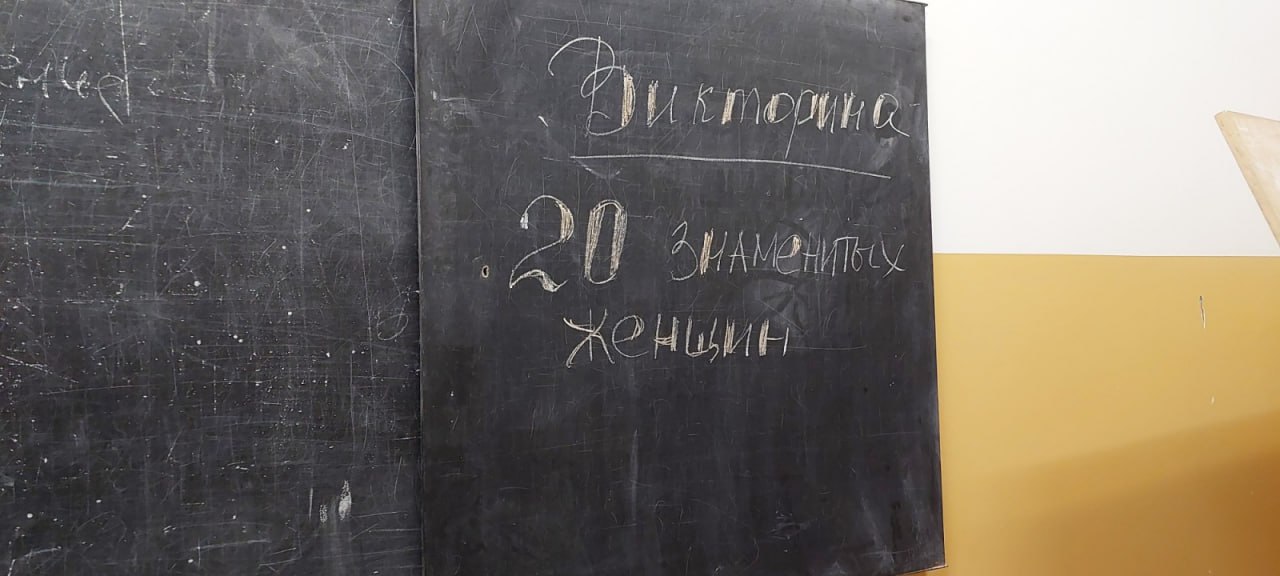 Викторина
20 знаменитых
женщин